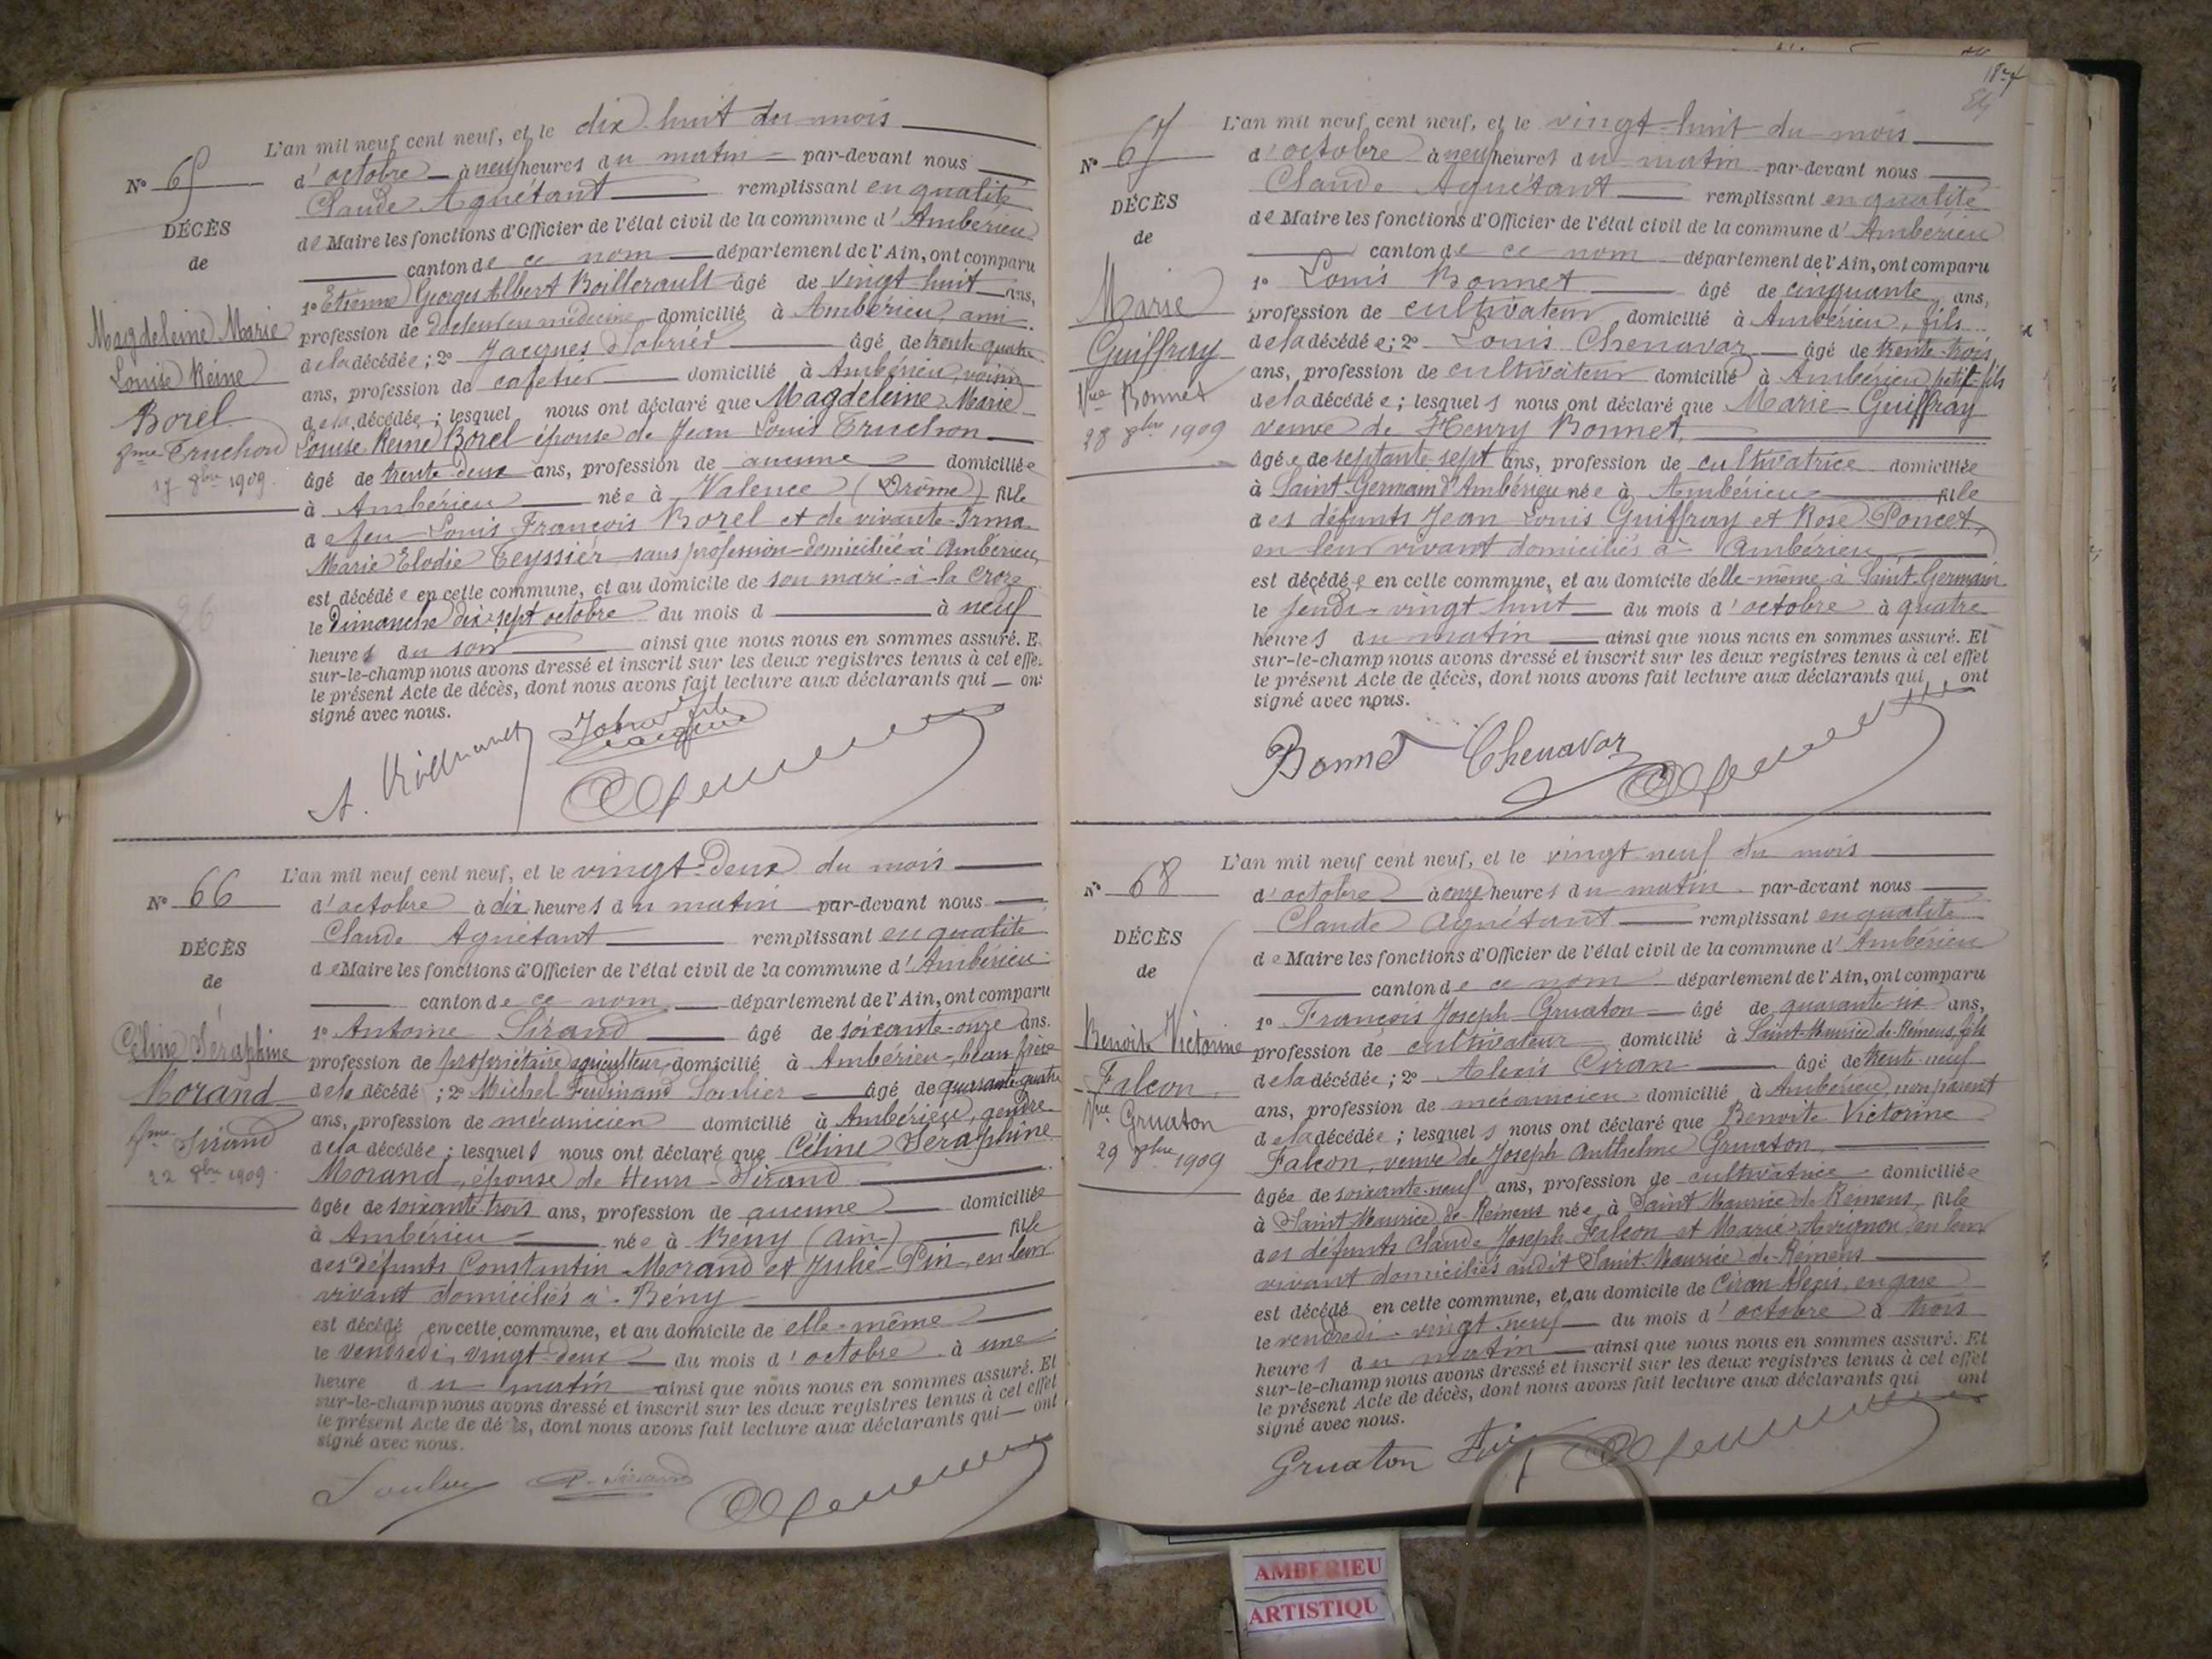 N° 65
DÉCÈS
de
Magdeleine Marie
Louise Reine
Borel
fme Truchon
17 8bre 1909
L'an mil neuf cent neuf, et le dix-huit du mois
d'octobre à neuf heures du matin par-devant nous
Claude Aguétant remplissant en qualité
de Maire les fonctions d'Officier de l'état civil de la commune d'Ambérieu
canton de ce nom département de l'Ain, ont comparu
1° Etienne Georges Albert Boillerault âgé de vingt huit ans,
profession de docteur en médecine domicilié à Ambérieu, ami
de la décédée; 2° Jacques âgé de trente quatre
ans, profession de cafetier domicilié à Ambérieu, voisin
de la décédée; lesquel nous ont déclaré que Magdeleine Marie
Louise Reine Borel épouse de Jean Louis Truchon
âgé de trente-deux ans, profession de aucune domiciliée
à Ambérieu née à Valence (Drôme) fille
de feu Louis François Borel et de vivante Irma
Marie Elodie Teyssier sans profession domiciliée à Ambérieu,
est décédée en cette commune, et au domicile de son mari à la Croze
le Dimanche dix-sept octobre du mois d à neuf
heures du soir ainsi que nous nous en sommes assuré. E
sur-le-champ nous avons dressé et inscrit sur les deux registres tenus à cet effe
le présent Acte de décès, dont nous avons fait lecture aux déclarants qui on
signé avec nous.
N° 66
DÉCÈS
de
Céline Séraphine
Morand
fme Sirand
22 8bre 1909
L'an mil neuf cent neuf, et le vingt-deux du mois
d'octobre à dix heures du matin par-devant nous
Claude Aguétant remplissant en qualité
de Maire les fonctions d'Officier de l'état civil de la commune d'Ambérieu
canton de ce nom département de l'Ain, ont comparu
1° Antoine Sirand âgé de soixante-onze ans.
profession de propriétaire agriculteur domicilié à Ambérieu, beau frère
de la décédé; 2° Michel Ferdinand Soulier âgé de quarante quatre
ans, profession de mécanicien domicilié à Ambérieu, gendre
de la décédée; lesquels nous ont déclaré que Céline Séraphine
Morand, épouse de Henri Sirand
âgée de soixante-trois ans, profession de aucune domiciliée
à Ambérieu née à Bény (Ain) fille
des défunts Constantin Morand et Julie Pin, en leur
vivant domiciliés à Bény
est décédé en cette commune, et au domicile de elle-même
le vendredi vingt-deux du mois d'octobre à une
heure du matin ainsi que nous nous en sommes assuré. Et
sur-le-champ nous avons dressé et inscrit sur les deux registres tenus à cet effet
le présent Acte de décès, dont nous avons fait lecture aux déclarants qui ont
signé avec nous.
Soulier A. Sirand
N° 67
DÉCÈS
de
Marie
Guiffray
Vve Bonnet
28 8bre 1909
L'an mil neuf cent neuf, et le vingt-huit du mois
d'octobre à neuf heures du matin par-devant nous
Claude Aguétant remplissant en qualité
de Maire les fonctions d'Officier de l'état civil de la commune d'Ambérieu
canton de ce nom département de l'Ain, ont comparu
1° Louis Bonnet âgé de cinquante ans,
profession de cultivateur domicilié à Ambérieu, fils
de la décédée; 2° Louis Chenavar âgé de trente-trois
ans, profession de cultivateur domicilié à Ambérieu petit-fils
de la décédée; lesquels nous ont déclaré que Marie Guiffray
veuve de Henry Bonnet,
âgée de septante-sept ans, profession de cultivatrice domiciliée
à Saint Germain d'Ambérieu née à Ambérieu fille
des défunts Jean Louis Guiffray et Rose Poncet,
en leur vivant domiciliés à Ambérieu
est décédée en cette commune, et au domicile d'elle-même à Saint-Germain
le jeudi vingt huit du mois d'octobre à quatre
heures du matin ainsi que nous nous en sommes assuré. Et
sur-le-champ nous avons dressé et inscrit sur les deux registres tenus à cet effet
le présent Acte de décès, dont nous avons fait lecture aux déclarants qui ont
signé avec nous.
Bonnet Chenavar
N° 68
DÉCÈS
de
Benoite Victorine
Falcon
Vve Gruaton
29 8bre 1909
L'an mil neuf cent neuf, et le vingt neuf du mois
d'octobre à onze heures du matin par-devant nous
Claude Aguétant remplissant en qualité
de Maire les fonctions d'Officier de l'état civil de la commune d'Ambérieu
canton de ce nom département de l'Ain, ont comparu
1° François Joseph Gruaton âgé de quarante-six ans,
profession de cultivateur domicilié à Saint-Maurice-de-Rémens, fils
de la décédée; 2° Alexis Ciran âgé de trente-neuf
ans, profession de mécanicien domicilié à Ambérieu, non parent
de la décédée; lesquels nous ont déclaré que Benoite Victorine
Falcon, veuve de Joseph Anthelme Gruaton
âgée de soixante-neuf ans, profession de cultivatrice domiciliée
à Saint Maurice de Rémens née à Saint Maurice de Rémens fille
des défunts Claude Joseph Falcon et Marie Avignon, en leur
vivant domiciliés audit Saint-Maurice-de-Rémens
est décédé en cette commune, et au domicile de Ciran Alexis, en gare
le vendredi vingt-neuf du mois d'octobre à trois
heures du matin ainsi que nous nous en sommes assuré. Et
sur-le-champ nous avons dressé et inscrit sur les deux registres tenus à cet effet
le présent Acte de décès, dont nous avons fait lecture aux déclarants qui ont
signé avec nous.
Gruaton
AMBERIEU
ARTISTIQU